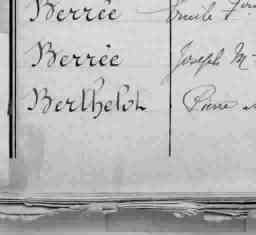 Berrée Emile
Berrée Joseph M
Berthelot Pierre